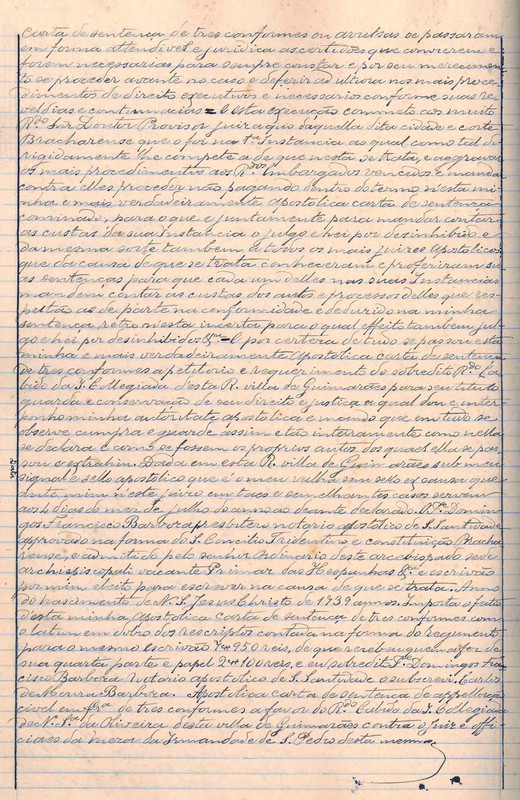 Carta de sentença de tres conformes ou avulsas se passaram
em forma attendivel e juridica as certidões que convierem e
forem necessarias para sempre constar e por seu merecimen
to se proceder avante no caso e deferir ad ultiora nos mais proce-
dimentos de direito executivos e necessarios conforme suas re-
veldias e contumacias = e esta execução commeto aos muito
R.do Snr Doutor Provisor juiz aqui daquella dita cidade e corte
Bracharense que o foi na 1.a Instancia ao qual como tal di-
rigidamente lhe compete a de que nesta se trata, e aggravar
os mais procedimentos aos R.dos Embargados vencidos e mandar
contra elles proceder não pagando dentro do termo n'esta mi-
nha e mais verdadeiramente apostolica carta de sentença
cominado, para o que e juntamente para mandar contar
as custas da sua Instancia o julgo e hei por desinhibido e
da mesma sorte tambem a todos os mais juizes apostolicos
que da causa de que se trata conheceram e proferiram su-
as sentenças para que cada um delles nas suas Instancias
mandem contar as custas dos autos e processos delles que res-
peitão as de parte na conformidade e deduzido na minha
sentença retro n'esta incerta para o qual effeito tambem jul-
go e hei por desinhibidos &.a = E por certeza de tudo se passou esta
minha e mais verdadeiramente Apostolica carta de sentença
de tres conformes a petitorio e requerimento do sobredito R.do Ca-
bido da I. Collegiada d'esta R. villa de Guimarães para seu titulo
guarda e conservação de seu direito e justiça a qual dou e inter-
ponho minha autoritate apostolica e mando que em tudo se
observe cumpra e guarde assim e tão inteiramente como nella
se declara e como se fossem os proprios autos dos quaes ella se pas-
sou e extrahiu. Dada em esta R. villa de Guimarães sub meu
signal e sello apostolico que é o meu valha sem sello ex causa que
ante mim n'este juizo em taes e semelhantes casos servem
aos 4 dias do mez de julho do anno ao deante declarado. P.e Domin-
gos Francisco Barbosa presbitero notario apostolico de S. Santidade
approvado na forma do S. Concilio Tridentino e constituição Bracha-
rense, e admittido pelo senhor Ordinario deste arcebispado sede
archiepiscopali vacante Primaz das Hespanhas &.a e escrivão
por mim eleito para escrever na causa de que se trata. Anno
do nascimento de N. S. Jesus Christo de 1739 annos. Importa o feitio
d'esta minha apostolica carta de sentença de tres conformes com
o latim em dobro dos rescriptos contada na forma do regimento
para o mesmo escrivão 4$950 reis, de que recebeu quem a fez de
sua quarta parte e papel 2$100 reis, e eu sobredito P.e Domingos Fra-
cisco Barbosa Notario apostolico de S. Santidade o subscrevi. Carlos
de Moura Barbosa. Apostolica carta de sentença de appellação
civel em fr.a de tres conformes a favor do R.do Cabido da I. Collegiada
de N. S.a da Oliveira desta villa de Guimarães contra o Juiz e offi-
ciaes da meza da Irmandade de S. Pedro desta mesma